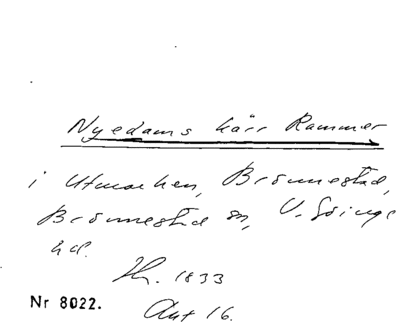 Nyedams kärr Rammer
i Utmarken, Brönnestad,
Brönnestad sn, V. Göinge
hd.
Hr. 1833
Nr 8022. Akt 16.